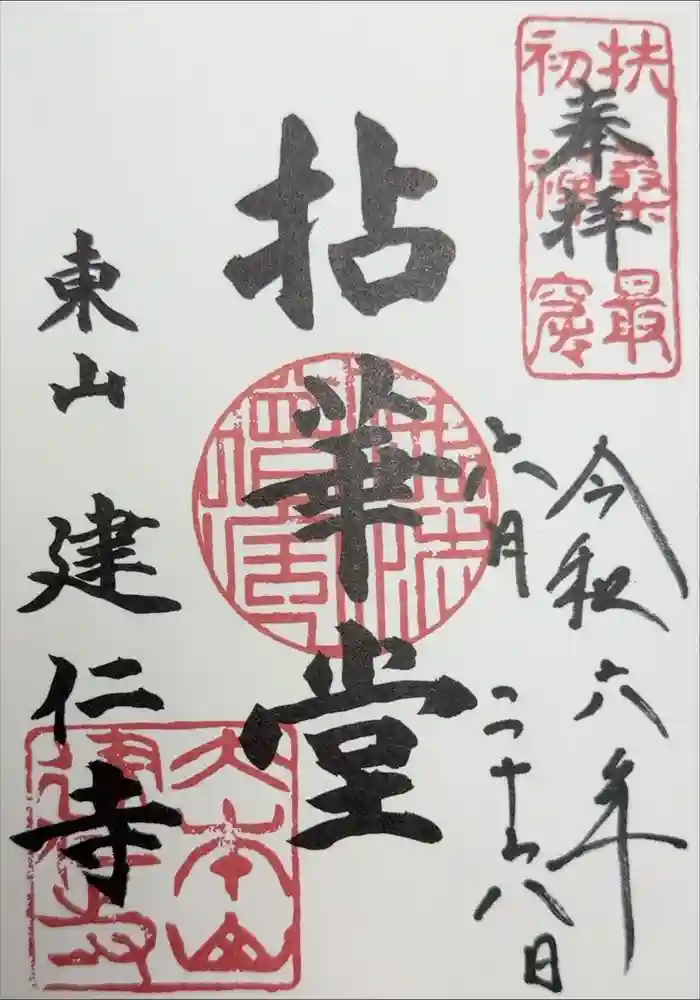 扶桑最
初禅窟
奉拝
令和六年
六月二十八日
拈華堂
東山 建仁寺
大本山
建仁寺